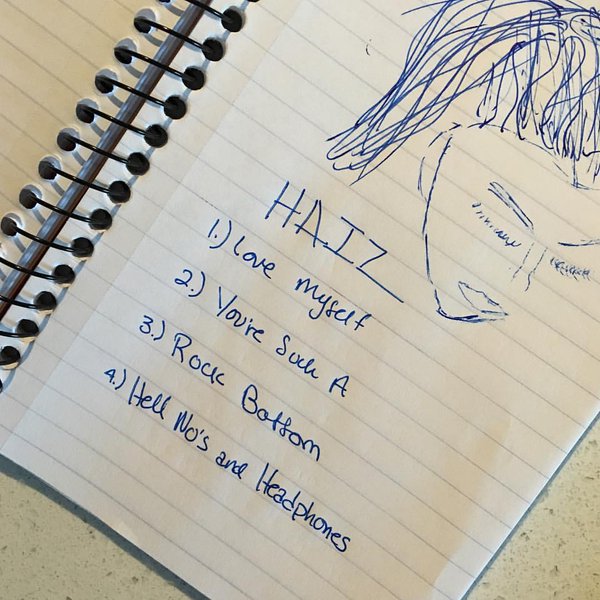 HAIZ
1.) Love myself
2.) You're Such A
3.) Rock Bottom
4.) Hell No's and Headphones